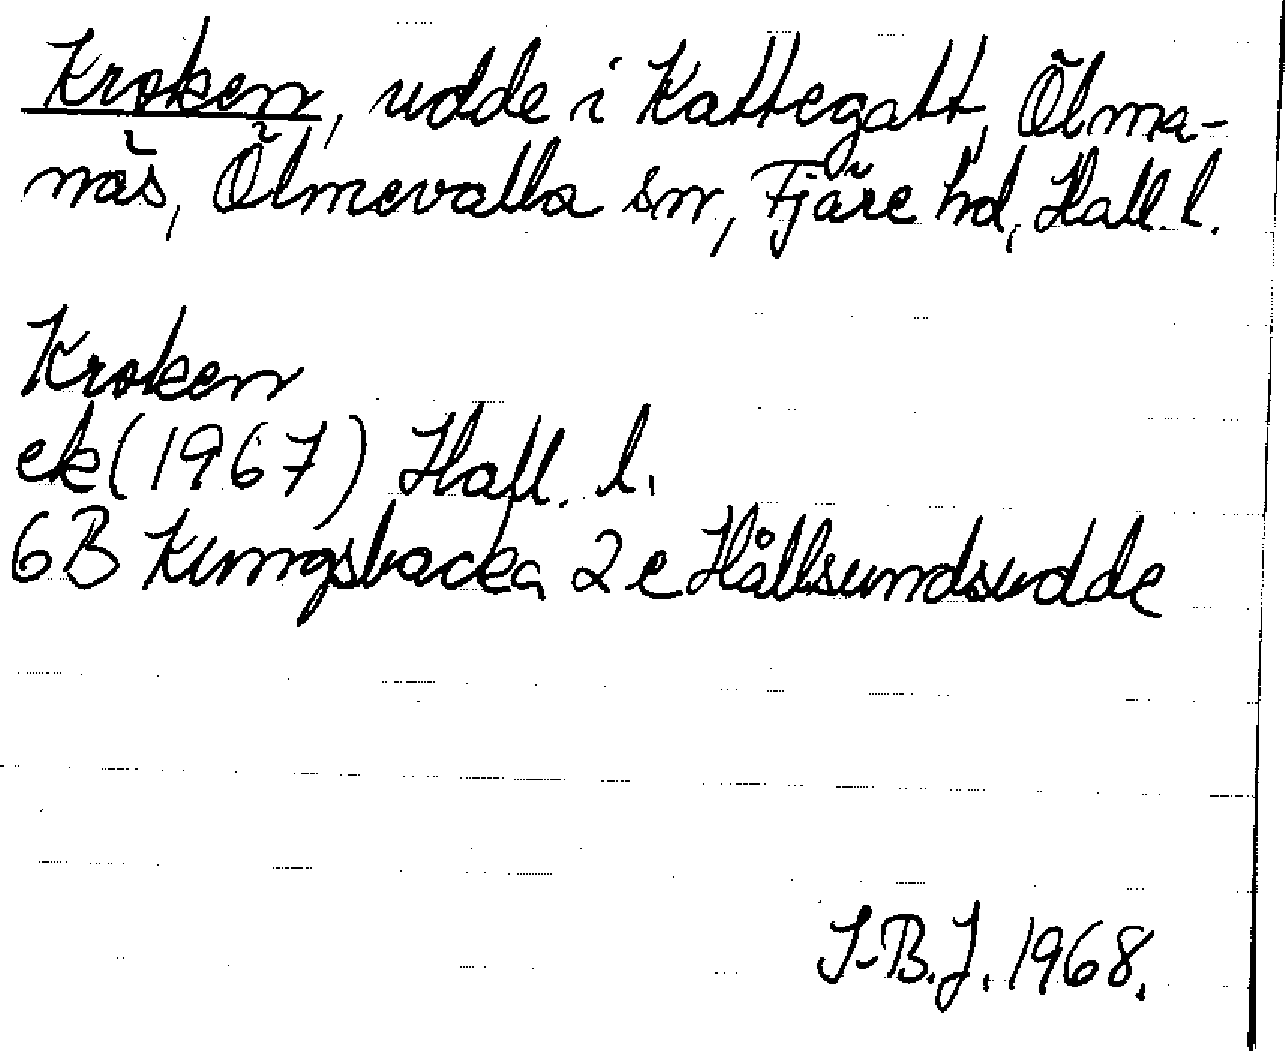 Kroken, udde i Kattegatt, Ölma-
näs, Ölmevalla sn, Fjäre hd, Hall. l.
Kroken
ek (1967) Hall. l.
6B Kungsbacka 2e Hållsundsudde
I-B.J. 1968.